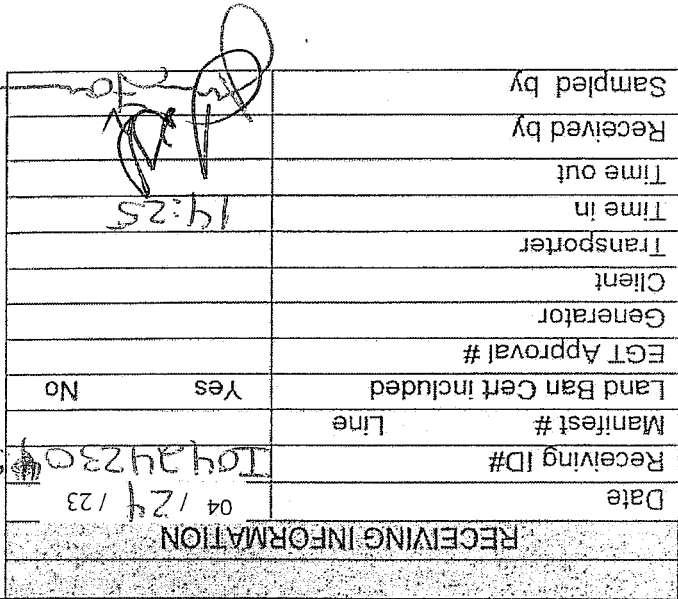 RECEIVING INFORMATION
Date 04 / 24 / 23
Receiving ID# I0424230
Manifest # Line
Land Ban Cert included Yes No
EGT Approval #
Generator
Client
Transporter
Time in 14:25
Time out
Received by
Sampled by